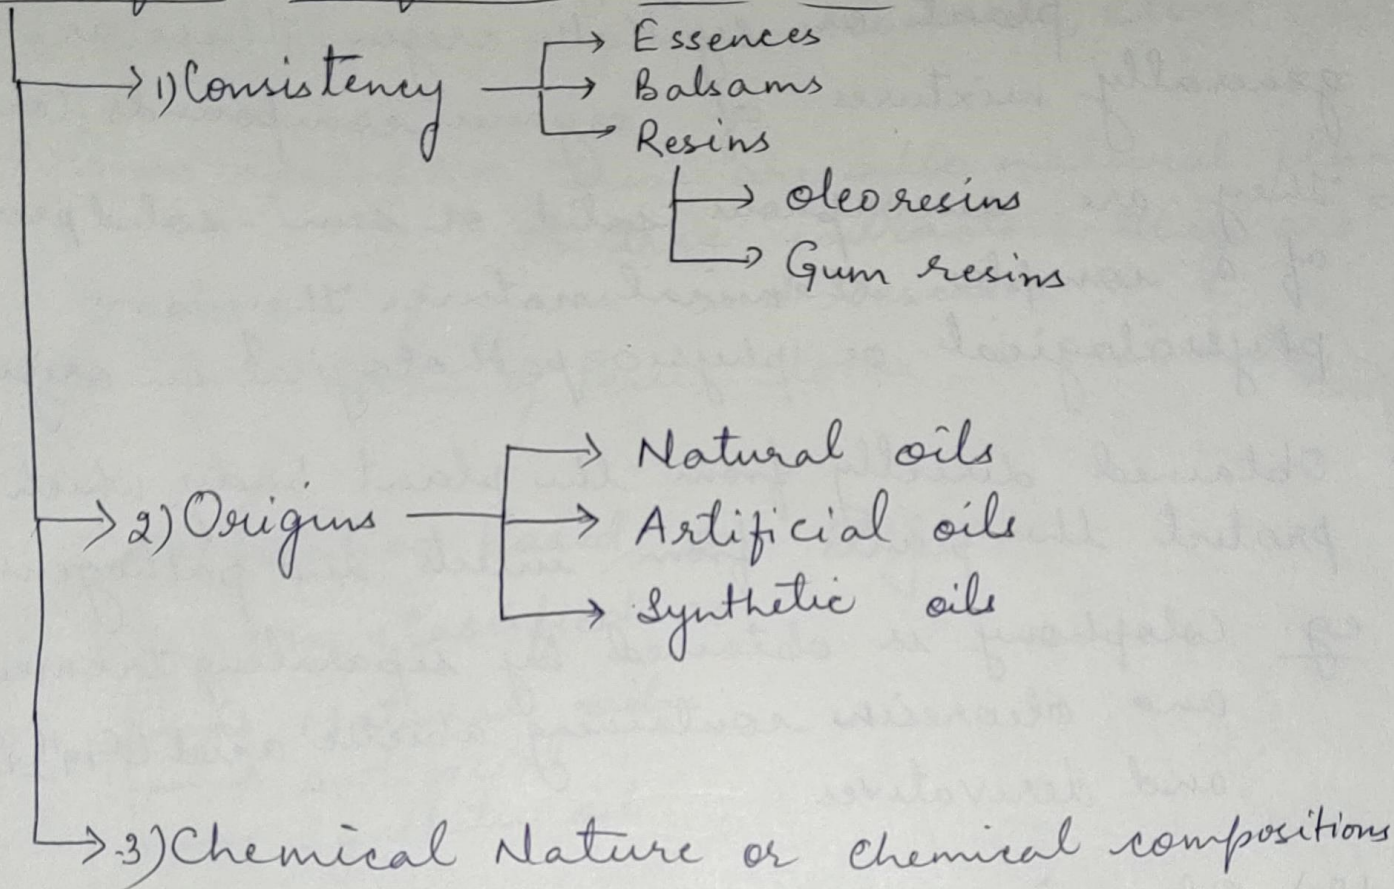 1) Consistency
Essences
Balsams
Resins
oleoresins
Gum resins
2) Origins
Natural oils
Artificial oils
Synthetic oils
3) Chemical Nature or chemical compositions